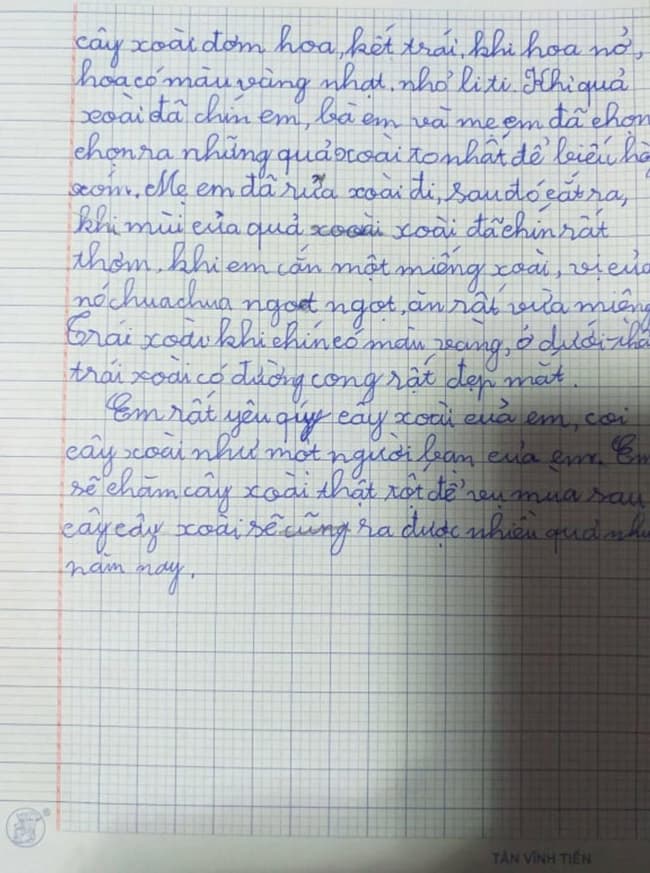 cây xoài đơm hoa, kết trái, khi hoa nở,
hoa có màu vàng nhạt, nhỏ li ti. Khi quả
xoài đã chín em, bà em và mẹ em đã chọn
chọn ra những quả xoài to nhất để biếu hà
xóm. Mẹ em đã rửa xoài đi, sau đó cắt ra,
khi mùi của quả xoài xoài đã chín rất
thơm, khi em cắn một miếng xoài, vị củ
nó chua chua ngọt ngọt, ăn rất vừa miên
Trái xoài khi chín có màu vàng, ở dưới thâ
trái xoài có đường cong rất đẹp mắt.
Em rất yêu quý cây xoài của em, coi
cây xoài như một người bạn của em. Em
sẽ chăm cây xoài thật tốt để vụ mùa sau
cây cây xoài sẽ cũng ra được nhiều quả như
năm nay.
TÂN VĨNH TIẾN